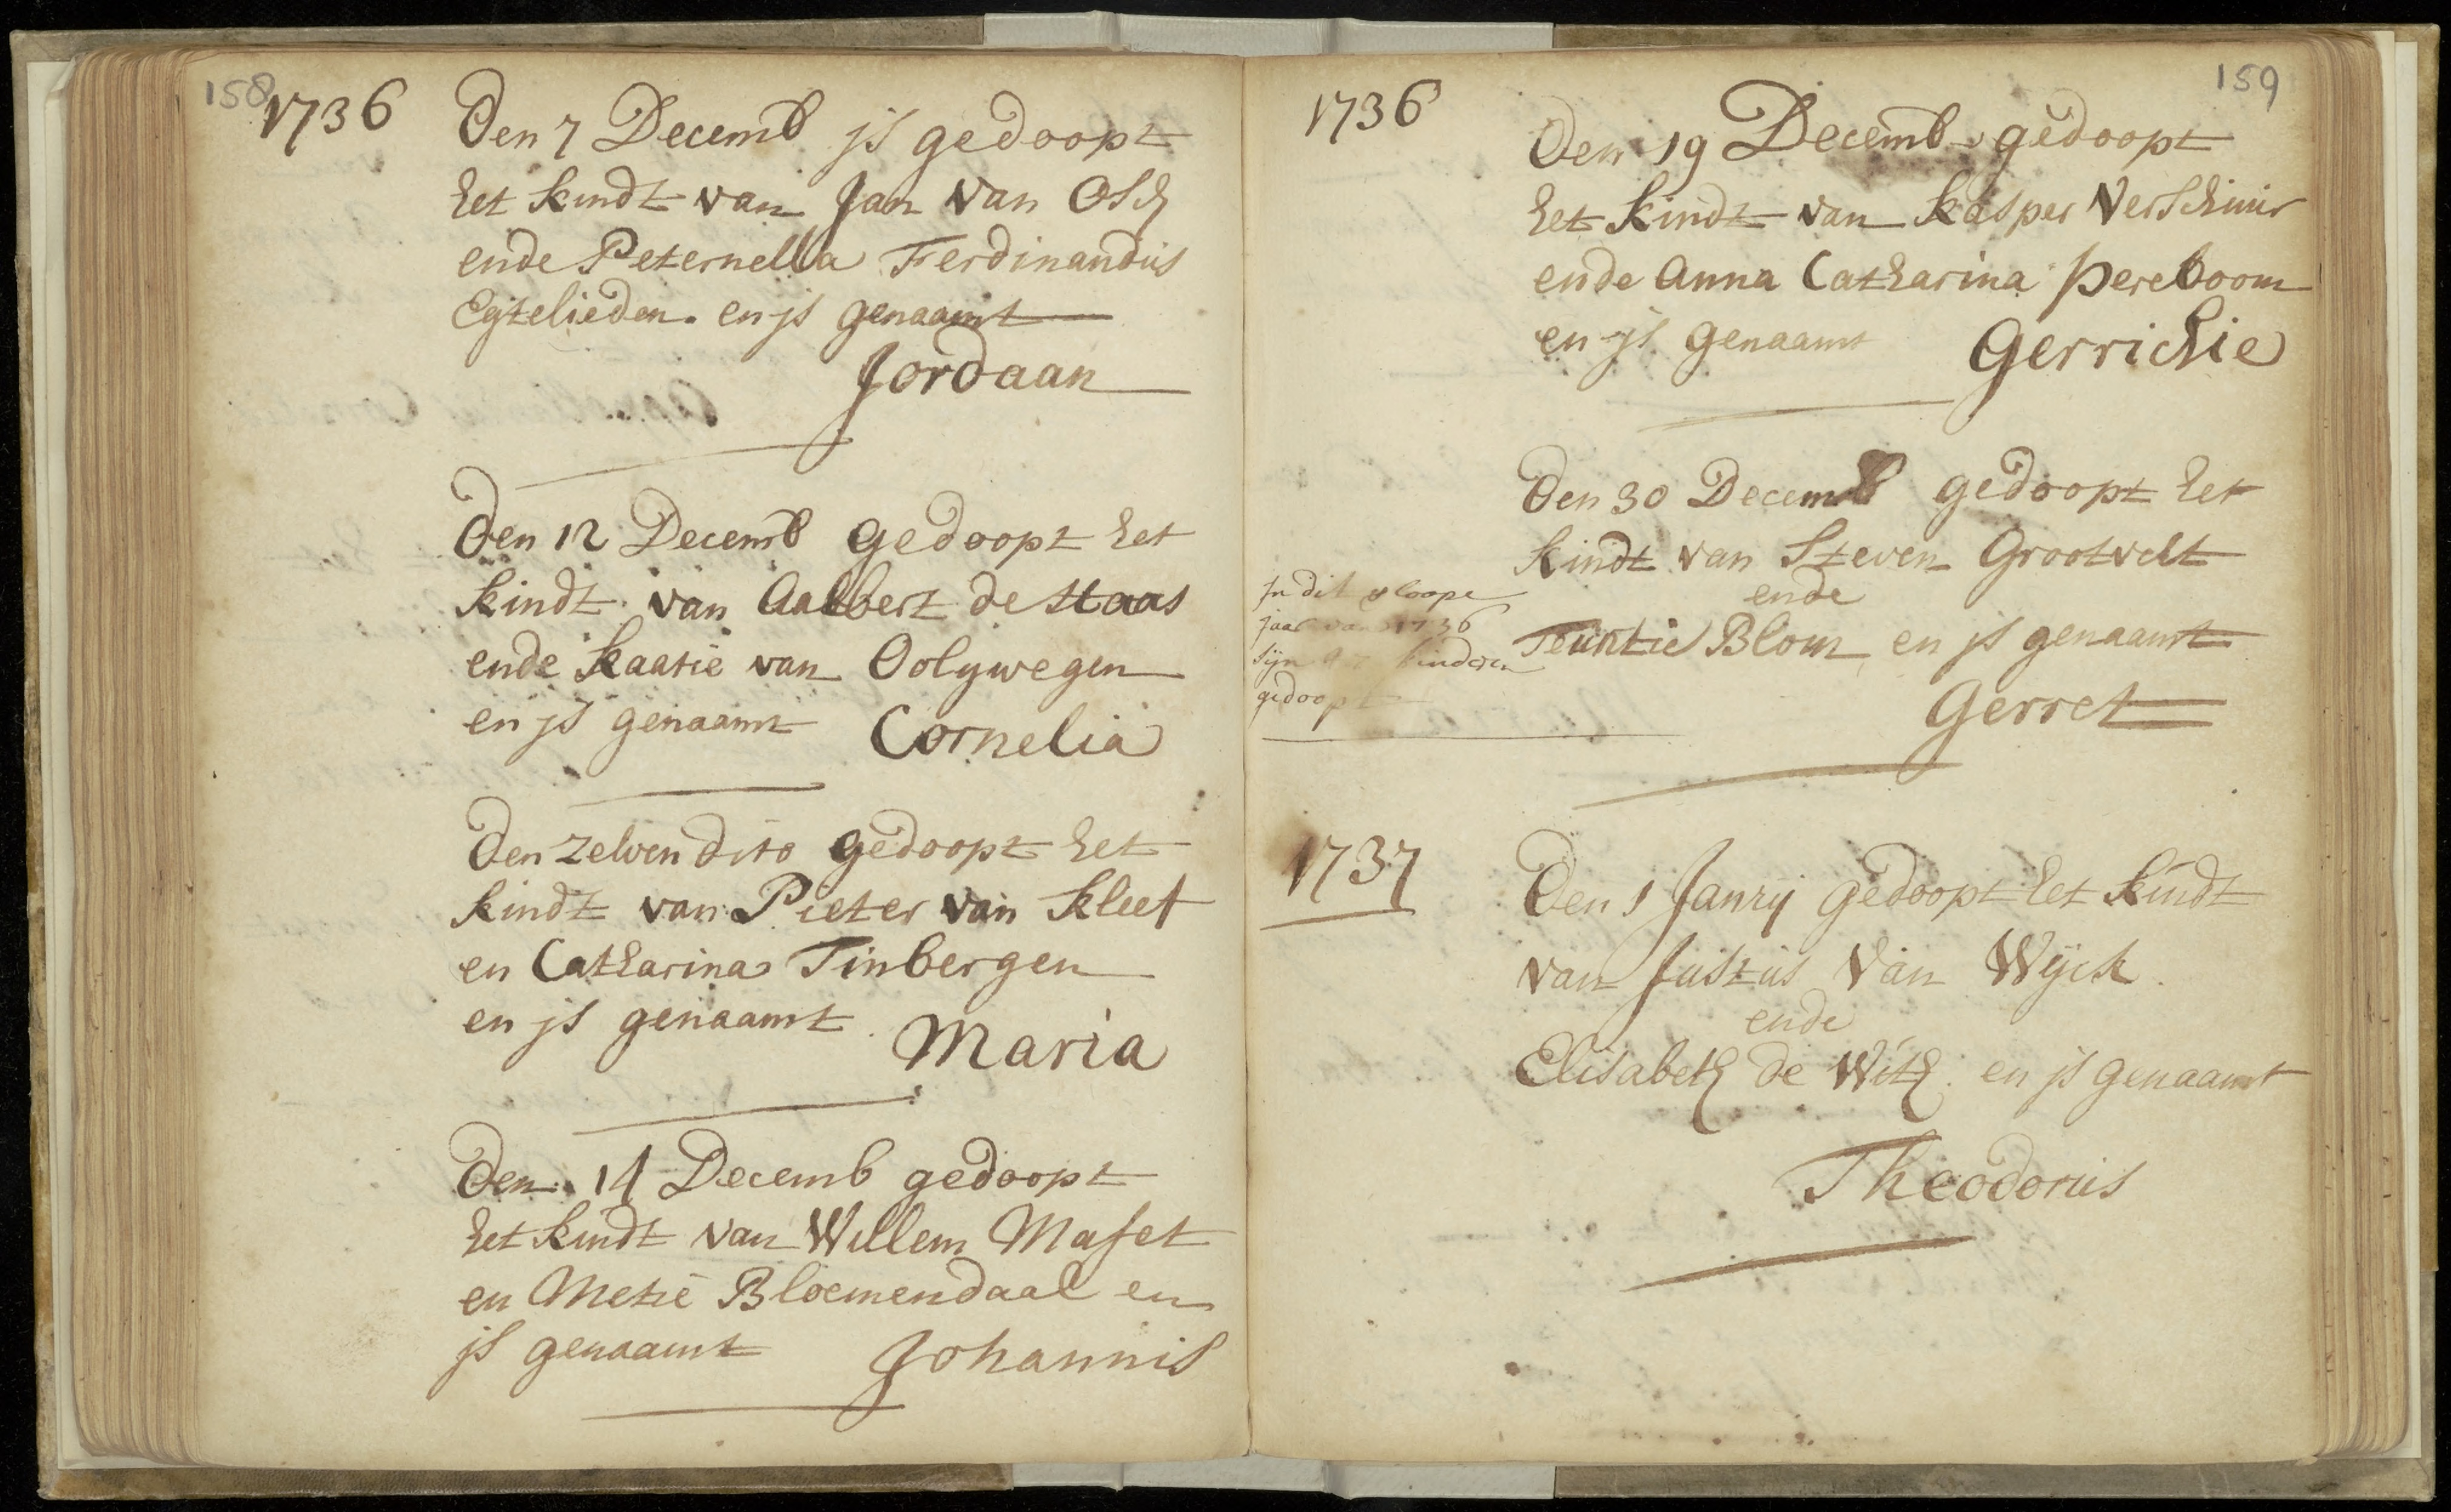 158
1736
Den 7 Decemb js gedoopt
het kindt van Jan van Osch
ende Peternella Ferdinandus
Egtelieden. en js genaamt
Jordaan
Den 12 Decemb gedoopt het
kindt van Aalbert de Haas
ende Kaatie van Oolywegen
en js genaamt Cornelia
Den zelven dito gedoopt het
kindt van Pieter van Kleef
en Catharina Tinbergen
en js genaamt Maria
Den 14 Decemb gedoopt
het kindt van Willem Maset
en Metie Bloemendaal en
js genaamt Johannis
159
1736
Den 19 Decemb gedoopt
het kindt van Kasper Verschuur
ende Anna Catharina Pereboom
en js genaamt Gerrichie
Den 30 Decemb gedoopt het
kindt van Steven Grootvelt
ende
Teuntie Blom en js genaamt
Gerret
In dit
jaar van 1736
sijn kinderen
gedoopt
1737
Den 1 Janrij gedoopt het kindt
van Justus van Wijck
ende
Elisabeth de With en js genaamt
Theodorus